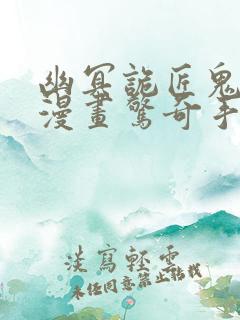 幽冥詭匠鬼
漫畫驚奇手
淡寫輕雲
未经同意禁止转载